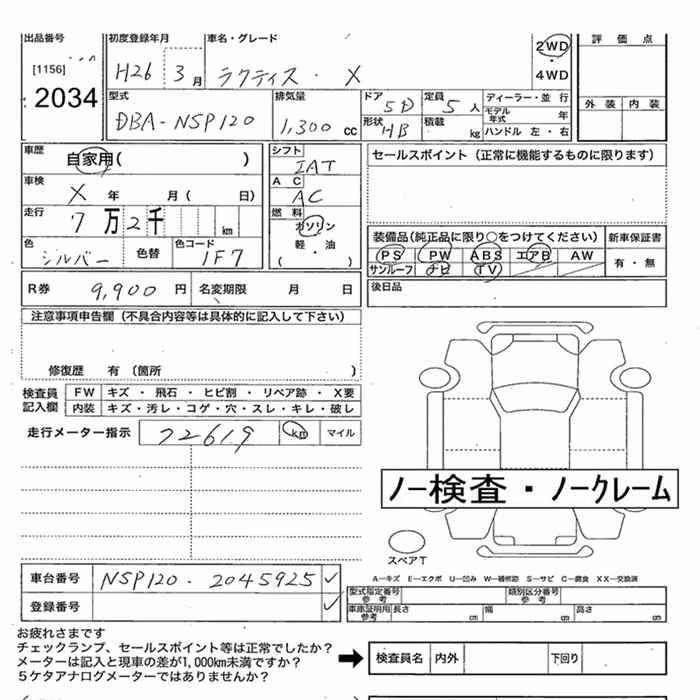 出品番号 初度登録年月 車名・グレード 2WD 評価点
[1156] H26 3月 ラクティス・X ・
2034 4WD
型式 排気量 ドア 5D 定員 5人 ディーラー・並行 外装 内装
DBA-NSP120 1,300cc 形状 HB 積載 kg モデル年式 年
ハンドル 左・右
車歴 自家用( ) シフト IAT セールスポイント(正常に機能するものに限ります)
車検 X年 月( 日) AC AC
走行 7万2千 km 燃料 ガソリン
軽・油
( ・ )
装備品(純正品に限り○をつけてください) 新車保証書
色 シルバー 色替 色コード 1F7 PS PW ABS エアB AW 有・無
サンルーフ ナビ TV
R券 9,900円 名変期限 月 日 後日品
注意事項申告欄(不具合内容等は具体的に記入して下さい)
修復歴 有(箇所 )
検査員記入欄 FW キズ・飛石・ヒビ割・リペア跡・X要
内装 キズ・汚レ・コゲ・穴・スレ・キレ・破レ
走行メーター指示 72619 km マイル
ノー検査・ノークレーム
スペアT
A−キズ E−エクボ U−凹み W−補修跡 S−サビ C−腐食 XX−交換済
車台番号 NSP120-2045925 ✓
登録番号 ✓
型式指定番号参考 類別区分番号参考
車庫証明用参考 長さ cm 幅 cm 高さ cm
お疲れさまです
チェックランプ、セールスポイント等は正常でしたか？
メーターは記入と現車の差が1,000km未満ですか？
5ケタアナログメーターではありませんか？
検査員名 内外 下回り